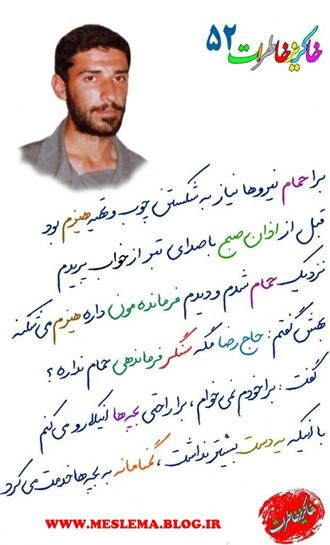 خاکریز خاطرات ۵۲
برا حمام نیروها نیاز به شکستن چوب و تهیه هیزم بود
قبل از اذان صبح با صدای تبر از خواب پریدم
نزدیک حمام شدم و دیدم فرمانده مون داره هیزم می شکنه
بهش گفتم : حاج رضا مگه سنگر فرماندهی حمام نداره ؟
گفت : برا خودم نمی خوام ، برا راحتی بچه ها اینکارو می کنم
با اینکه یه دست بیشتر نداشت ، گمنامانه به بچه ها خدمت می کرد
خاکریز خاطرات
WWW.MESLEMA.BLOG.IR